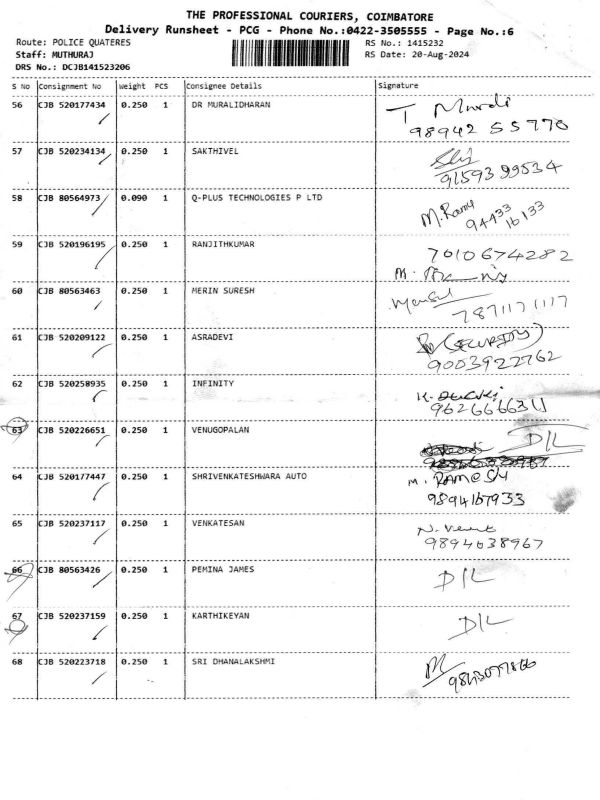 THE PROFESSIONAL COURIERS, COIMBATORE
Delivery Runsheet - PCG - Phone No.:0422-3505555 - Page No.:6
Route: POLICE QUATERES RS No.: 1415232
Staff: MUTHURAJ RS Date: 20-Aug-2024
DRS No.: DCJB141523206
S No Consignment No Weight PCS Consignee Details Signature
56 CJB 520177434 0.250 1 DR MURALIDHARAN T Murali
98942 55770
57 CJB 520234134 0.250 1 SAKTHIVEL
9159399534
58 CJB 80564973 0.090 1 Q-PLUS TECHNOLOGIES P LTD M. Ramy
94433
16133
59 CJB 520196195 0.250 1 RANJITHKUMAR 7010674282
60 CJB 80563463 0.250 1 MERIN SURESH
7871171117
61 CJB 520209122 0.250 1 ASRADEVI (SECURITY)
9003922762
62 CJB 520258935 0.250 1 INFINITY
9626666311
63 CJB 520226651 0.250 1 VENUGOPALAN D/L
64 CJB 520177447 0.250 1 SHRIVENKATESHWARA AUTO M. RAMESH
9894167933
65 CJB 520237117 0.250 1 VENKATESAN N. Venk
9894638967
66 CJB 80563426 0.250 1 PEMINA JAMES D/L
67 CJB 520237159 0.250 1 KARTHIKEYAN D/L
68 CJB 520223718 0.250 1 SRI DHANALAKSHMI